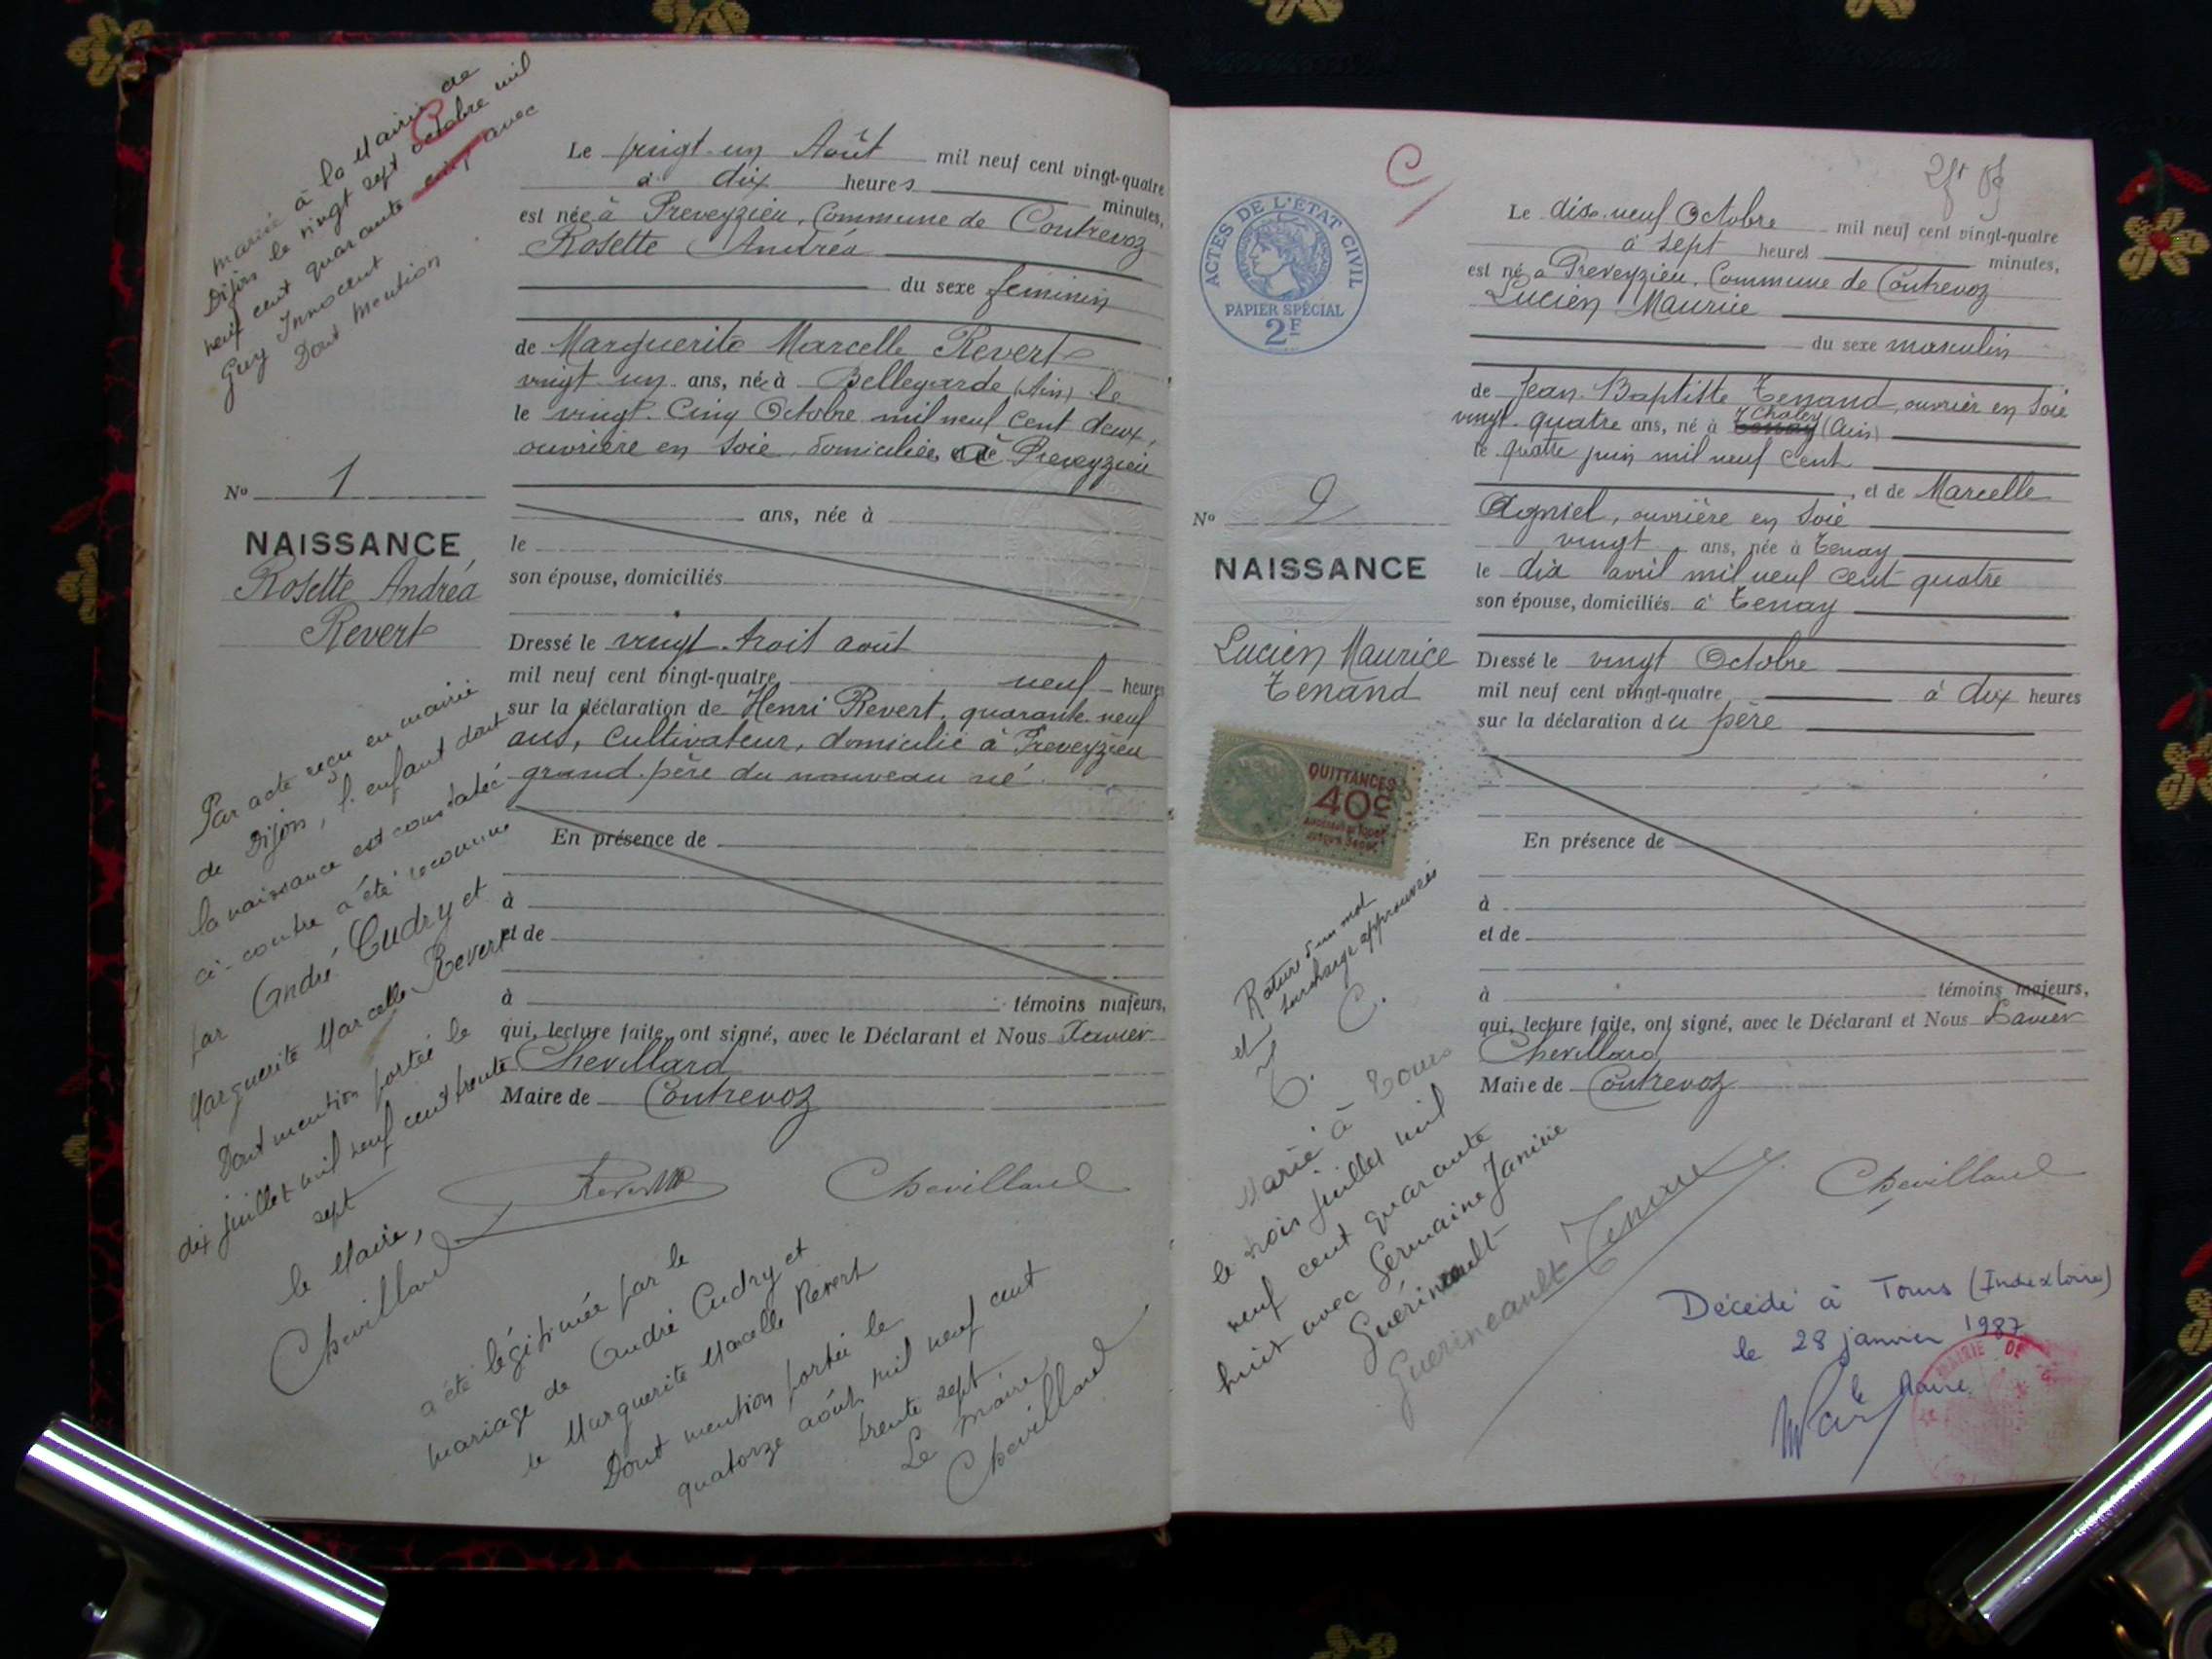 mariée à la Mairie de
Dijon le vingt sept octobre mil
neuf cent quarante cinq avec
Guy Innocent
Dont mention
Le vingt-un Août mil neuf cent vingt-quatre
à dix heures minutes,
est née à Preveyzieu, Commune de Contrevoz
Rosette Andréa
du sexe féminin
de Marguerite Marcelle Revert
vingt un ans, née à Bellegarde (Ain) le
le vingt-cinq Octobre mil neuf cent deux,
ouvrière en soie, domiciliée à Preveyzieu
ans, née à
le
son épouse, domiciliés
No 1
NAISSANCE
Rosette Andréa
Revert
Dressé le vingt-trois août
mil neuf cent vingt-quatre neuf heures
sur la déclaration de Henri Revert, quarante-neuf
ans, cultivateur, domicilié à Preveyzieu
grand-père du nouveau né.
En présence de
à
et de
à témoins majeurs,
qui, lecture faite, ont signé, avec le Déclarant et Nous Xavier
Chevillard
Maire de Contrevoz
Par acte reçu en mairie
de Dijon, l'enfant dont
la naissance est constatée
ci-contre a été reconnue
par André Cudry et
Marguerite Marcelle Revert
Dont mention portée le
dix juillet mil neuf cent trente
sept
le Maire,
Chevillard
Revert
Chevillard
a été légitimée par le
mariage de André Cudry et
de Marguerite Marcelle Revert
Dont mention portée le
quatorze août mil neuf cent
trente sept
Le maire
Chevillard
C
ACTES DE L'ÉTAT CIVIL
PAPIER SPÉCIAL
2F
Le dix-neuf Octobre mil neuf cent vingt-quatre
à sept heures minutes,
est né à Preveyzieu, Commune de Contrevoz
Lucien Maurice
du sexe masculin
de Jean-Baptiste Tenand, ouvrier en soie
Chaley
vingt-quatre ans, né à Tenay (Ain)
le quatre juin mil neuf cent
, et de Marcelle
Agniel, ouvrière en soie
vingt ans, née à Tenay
le dix avril mil neuf cent quatre
son épouse, domiciliés à Tenay
No 2
NAISSANCE
Lucien Maurice
Tenand
Dressé le vingt Octobre
mil neuf cent vingt-quatre à dix heures
sur la déclaration du père
QUITTANCES
40c
En présence de
à
et de
à témoins majeurs,
qui, lecture faite, ont signé, avec le Déclarant et Nous Xavier
Chevillard
Maire de Contrevoz
Rature d'un mot
et surcharge approuvées
T. C.
Marié à Tours
le trois juillet mil
neuf cent quarante
huit avec Germaine Janine
Guérineault
Guerineault
Tenand
Chevillard
Décédé à Tours (Indre & Loire)
le 28 janvier 1987
le Maire
MAIRIE DE